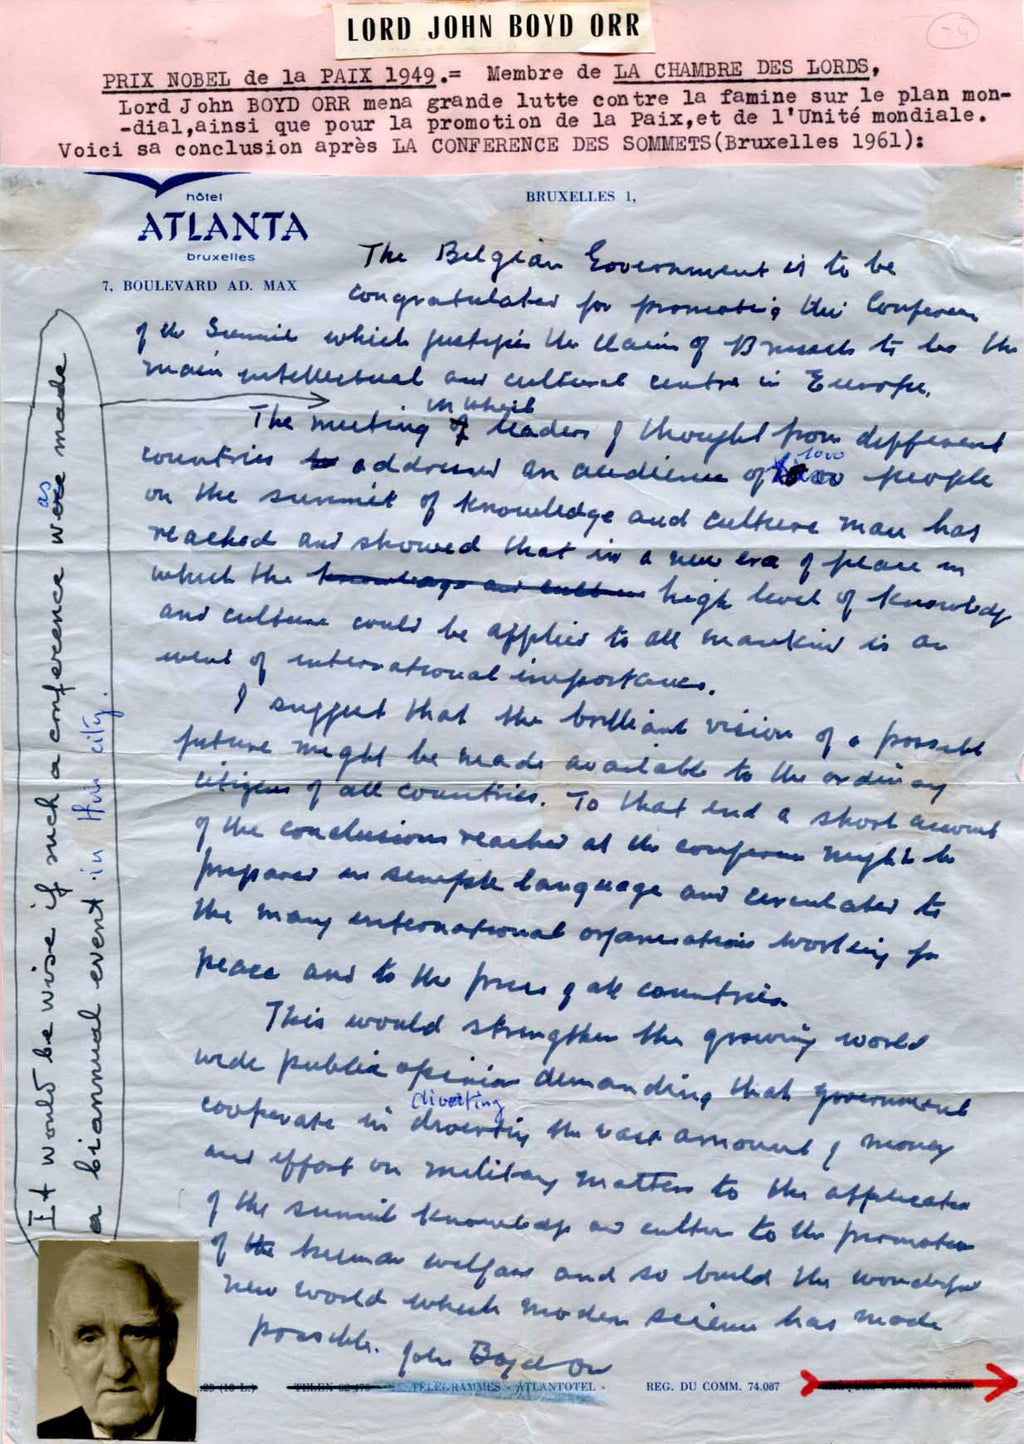 LORD JOHN BOYD ORR
24
PRIX NOBEL de la PAIX 1949.= Membre de LA CHAMBRE DES LORDS,
Lord John BOYD ORR mena grande lutte contre la famine sur le plan mon-
-dial,ainsi que pour la promotion de la Paix,et de l'Unité mondiale.
Voici sa conclusion après LA CONFERENCE DES SOMMETS(Bruxelles 1961):
hôtel
ATLANTA
bruxelles
7, BOULEVARD AD. MAX
BRUXELLES 1,
The Belgian Government is to be
congratulated for promoting this Conference
of the Summit which justifies the claim of Brussels to be the
main intellectual and cultural centre in Europe.
in which
The meeting of leaders of thought from different
countries to addressed an audience of 1000 people
on the summit of knowledge and culture man has
reached and showed that in a new era of peace in
which the knowledge and culture high level of knowledge
and culture could be applied to all mankind is an
event of international importance.
I suggest that the brilliant vision of a possible
future might be made available to the ordinary
citizens of all countries. To that end a short account
of the conclusions reached at the conference might be
prepared in simple language and circulated to
the many international organisations working for
peace and to the press of all countries
This would strengthen the growing world
wide public opinion demanding that government
diverting
cooperate in diverting the vast amount of money
and effort on military matters to the application
of the summit knowledge and culture to the promotion
of the human welfare and so build the wonderful
new world which modern science has made
possible. John Boyd Orr
It would be wise if such a conference was made
as
a biannual event in this city.
TELEGRAMMES « ATLANTOTEL »
REG. DU COMM. 74.087